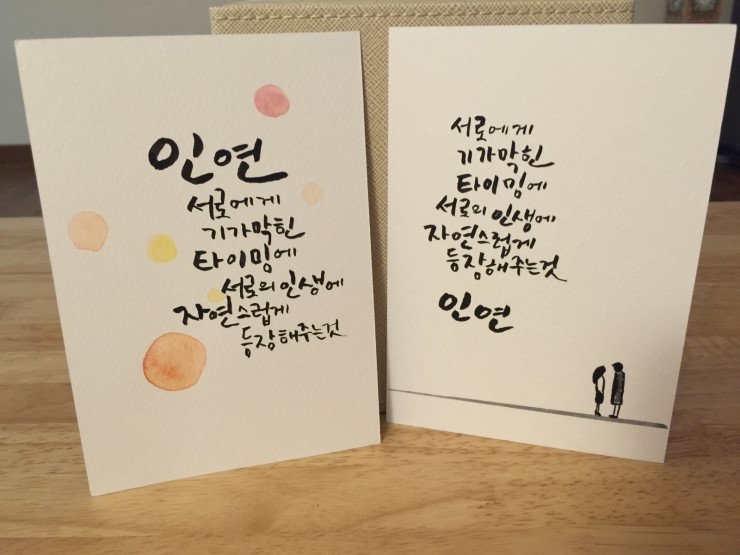 인연
서로에게
기가막힌
타이밍에
서로의 인생에
자연스럽게
등장해주는것
서로에게
기가막힌
타이밍에
서로의 인생에
자연스럽게
등장해주는것
인연